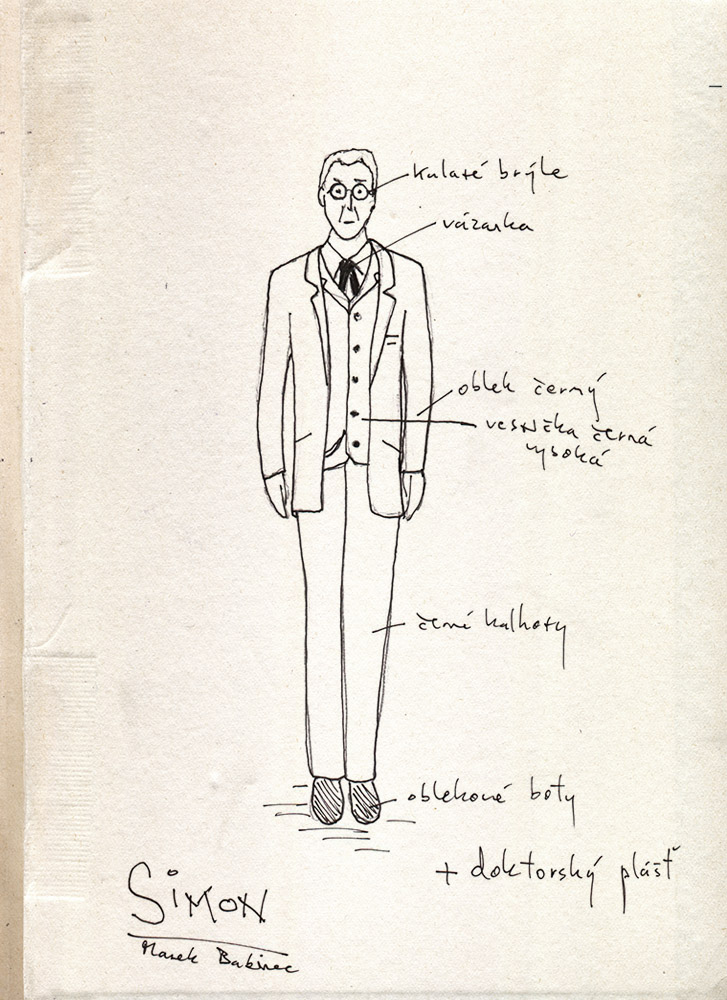 kulaté brýle
vázanka
oblek černý
vestička černá
vysoká
černé kalhoty
oblekové boty
+ doktorský plášť
SiMON
Marek Babinec